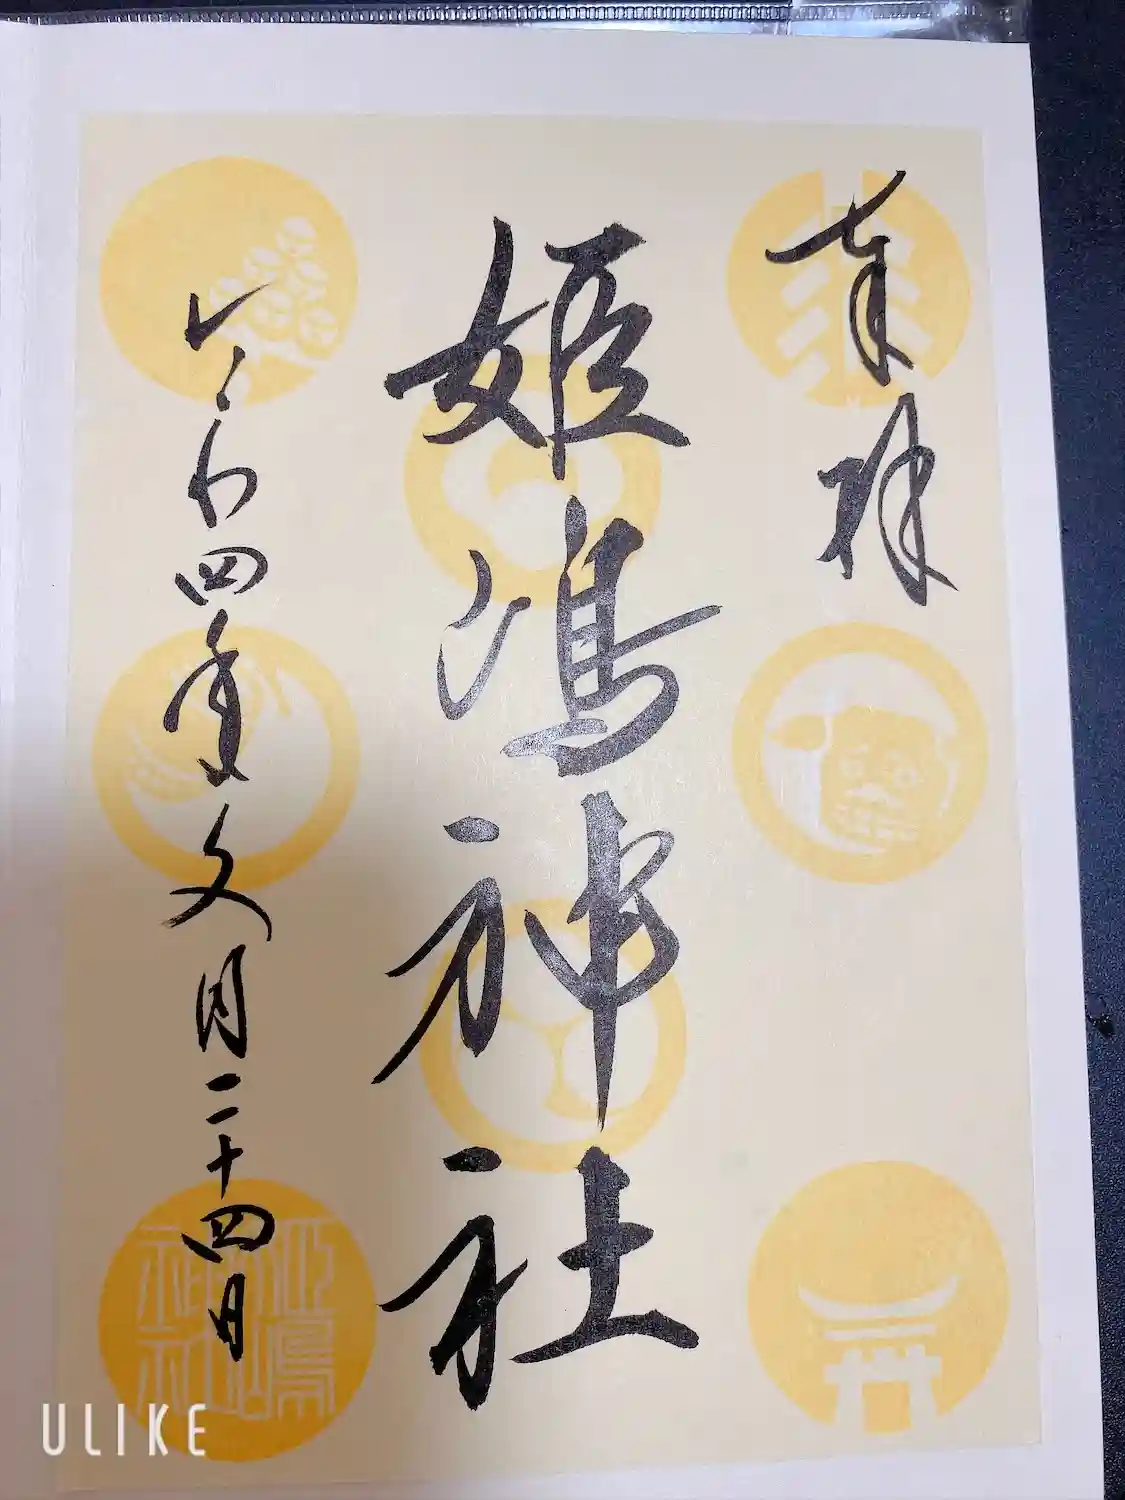 奉拝
姫嶋神社
令和四年文月二十四日
姫嶋
神社
ULIKE